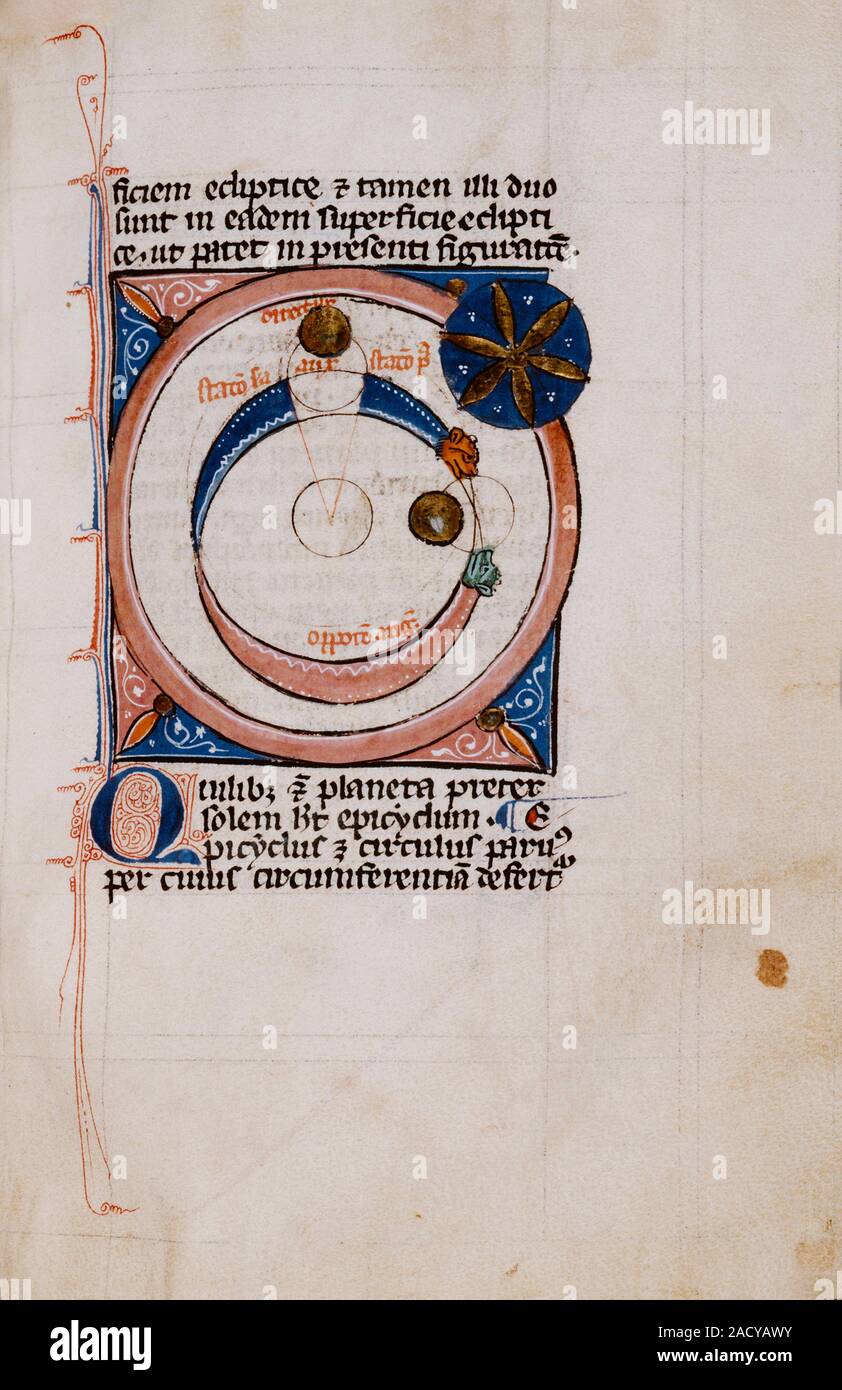 ficiem ecliptice ⁊ tamen illi duo
sunt in eadem superficie eclipti
ce·ut patet in presenti figuratōe·
directus
statō sa aux statō pa
oppotō augꝭ
Quilibꝫ ⁊ planeta preter
solem hꝫt epicyclum· ¶ E
picyclus ē circulus paruꝰ
per cuius circumferentiā defert
alamy
Image ID: 2ACYAWY
www.alamy.com